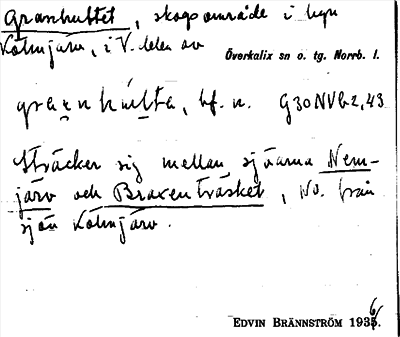 Granhultet, skogsområde i byn
Kölmjärv, i V. delen av
Överkalix sn o. tg. Norrb. l.
bf. n. G30NVb2,43
Sträcker sig mellan sjöarna Nem-
järv och Braxenträsket, NV. från
sjön Kölmjärv.
EDVIN BRÄNNSTRÖM 1936.